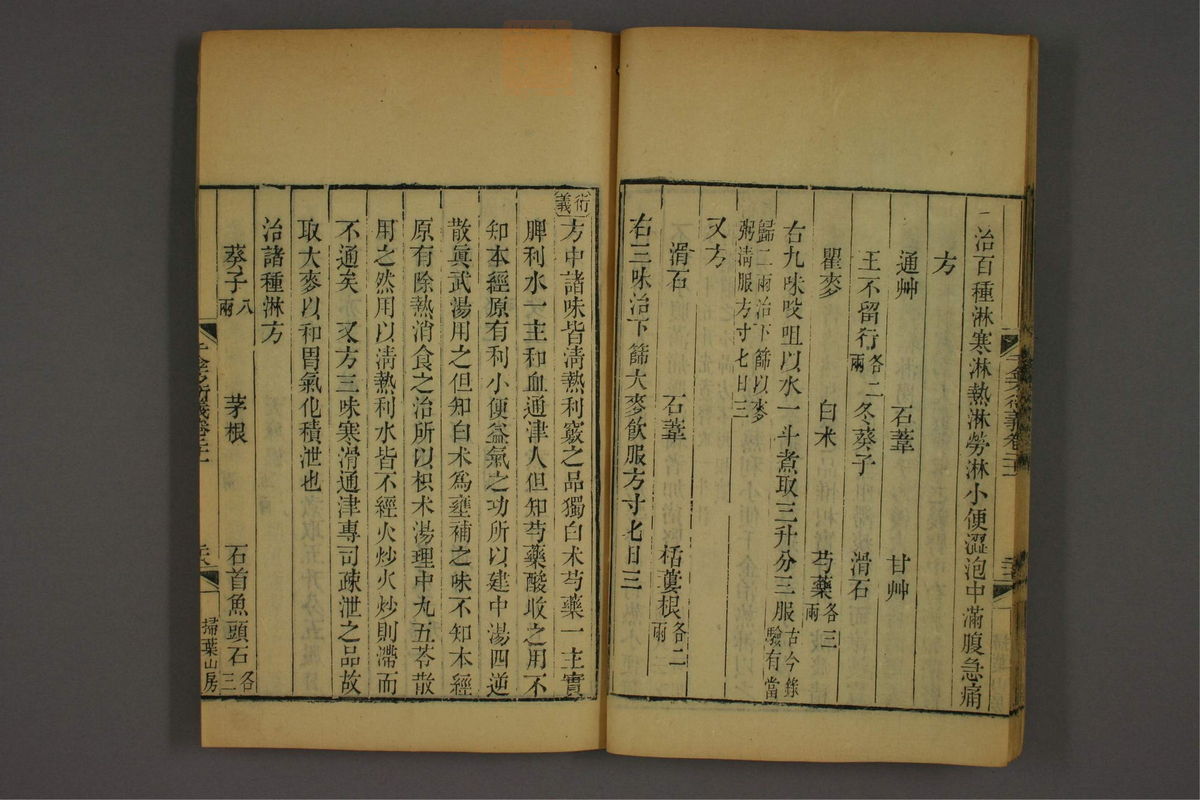 治百種淋寒淋熱淋勞淋小便澀泡中滿腹急痛
方
通艸 石葦 甘艸
王不留行各二兩 冬葵子 滑石
瞿麥 白朮 芍藥各三兩
右九味㕮咀以水一斗煮取三升分三服古今錄驗有當
歸二兩治下篩以麥粥清服方寸七日三
又方
滑石 石葦 栝蔞根各二兩
右三味治下篩大麥飲服方寸七日三
衍義
方中諸味皆清熱利竅之品獨白朮芍藥一主實
脾利水一主和血通津人但知芍藥酸收之用不
知本經原有利小便益氣之功所以建中湯四逆
散眞武湯用之但知白朮爲壅補之味不知本經
原有除熱消食之治所以枳朮湯理中丸五苓散
用之然用以清熱利水皆不經火炒火炒則滯而
不通矣 又方三味寒滑通津專司疎泄之品故
取大麥以和胃氣化積泄也
治諸種淋方
葵子八兩 茅根 石首魚頭石各三
掃葉山房